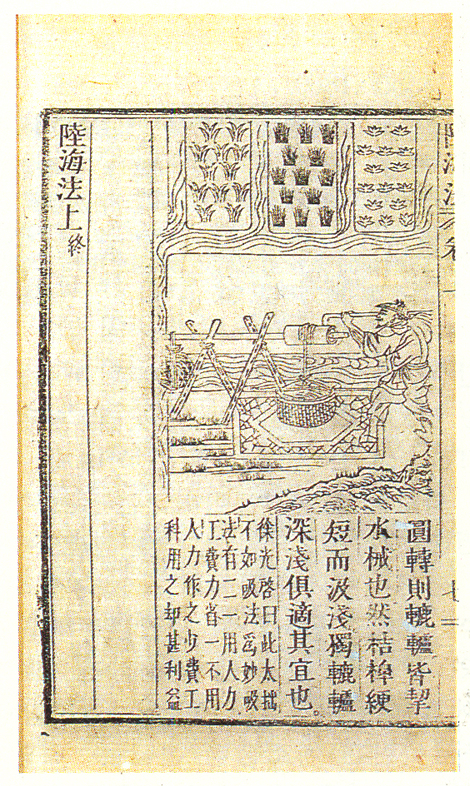 圓轉則轆轤皆挈
水械也然桔橰綆
短而汲淺獨轆轤
深淺俱適其宜也。
徐光啓曰此太拙
不如吸法爲妙吸
法有二一用人力
工費力省一不用
人力作之少費工
科用之却甚利益
陸海法上終